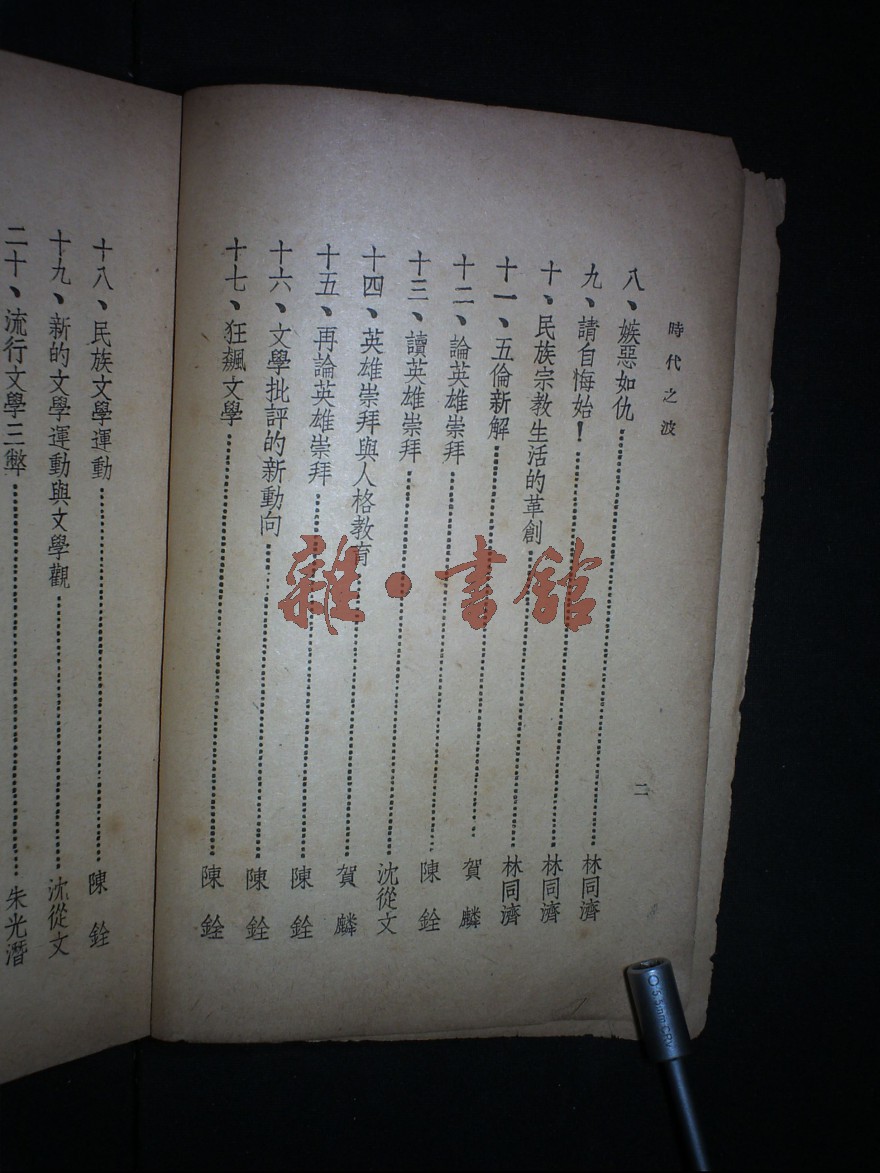 時代之波
二
八、嫉惡如仇……林同濟
九、請自悔始！……林同濟
十、民族宗教生活的革創……林同濟
十一、五倫新解……賀麟
十二、論英雄崇拜……陳銓
十三、讀英雄崇拜……沈從文
十四、英雄崇拜與人格教育……賀麟
十五、再論英雄崇拜……陳銓
十六、文學批評的新動向……陳銓
十七、狂飆文學……陳銓
十八、民族文學運動……陳銓
十九、新的文學運動與文學觀……沈從文
二十、流行文學三弊……朱光潛
雜·書館